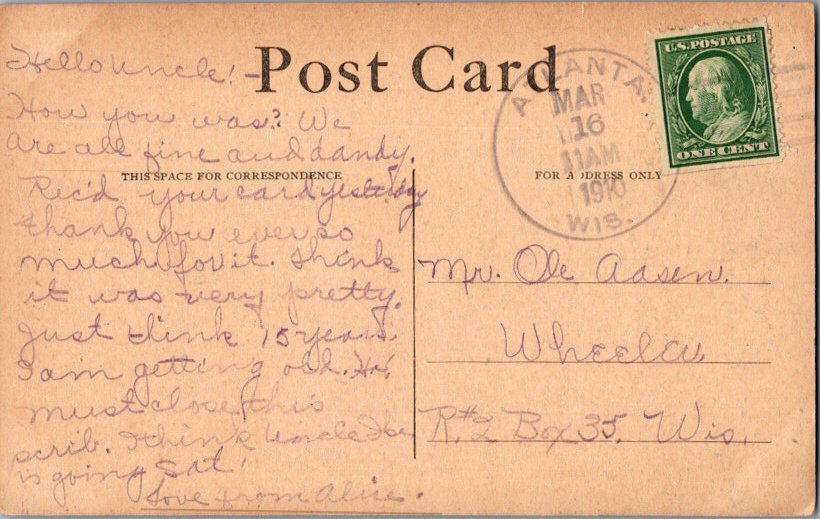 Post Card
Hello Uncle! -
How you was? We
are all fine and dandy.
THIS SPACE FOR CORRESPONDENCE
Rec'd your card yesterday
thank you ever so
much for it. think
it was very pretty.
Just think 15 years
I am getting old. Ha!
must close this
scrib. I think Uncle
is going Sat.
Love from Alice.
ATLANTA.
MAR
16
11AM
1910
WIS.
U.S. POSTAGE
ONE CENT
FOR ADDRESS ONLY
Mr. Ole Aasen.
Wheeler
R.#2 Box 35, Wis.